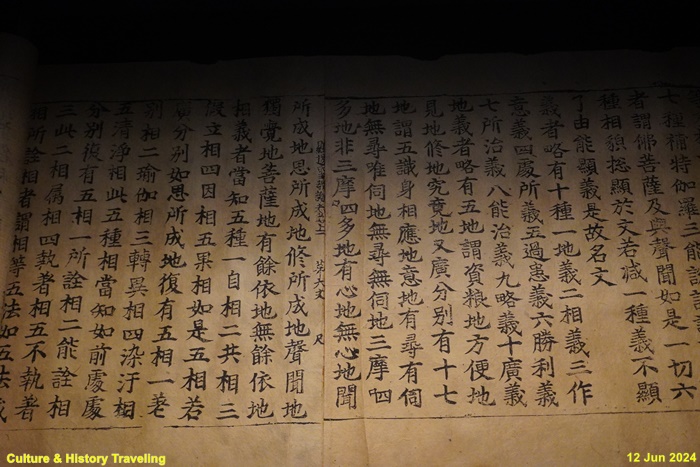 七種補特伽羅三能說
者謂佛菩薩及與聲聞如是一切六
種相貌捴顯於文若减一種義不顯
了由能顯義是故名文
義者略有十種一地義二相義三作
意義四處所義五過患義六勝利義
七所治義八能治義九略義十廣義
地義者略有五地謂資粮地方便地
見地修地究竟地又廣分別有十七
地謂五識身相應地意地有尋有伺
地無尋唯伺地無尋無伺地三摩呬
多地非三摩呬多地有心地無心地聞
第六丈 尺
所成地思所成地修所成地聲聞地
獨覺地菩薩地有餘依地無餘依地
相義者當知五種一自相二共相三
假立相四因相五果相如是五相若
廣分別如思所成地復有五相一差
別相二瑜伽相三轉異相四染汙相
五清淨相此五種相當知如前處處
分別復有五相一所詮相二能詮相
三此二相属相四執著相五不執著
相所詮相者謂相等五法如五法
Culture & History Traveling
12 Jun 2024